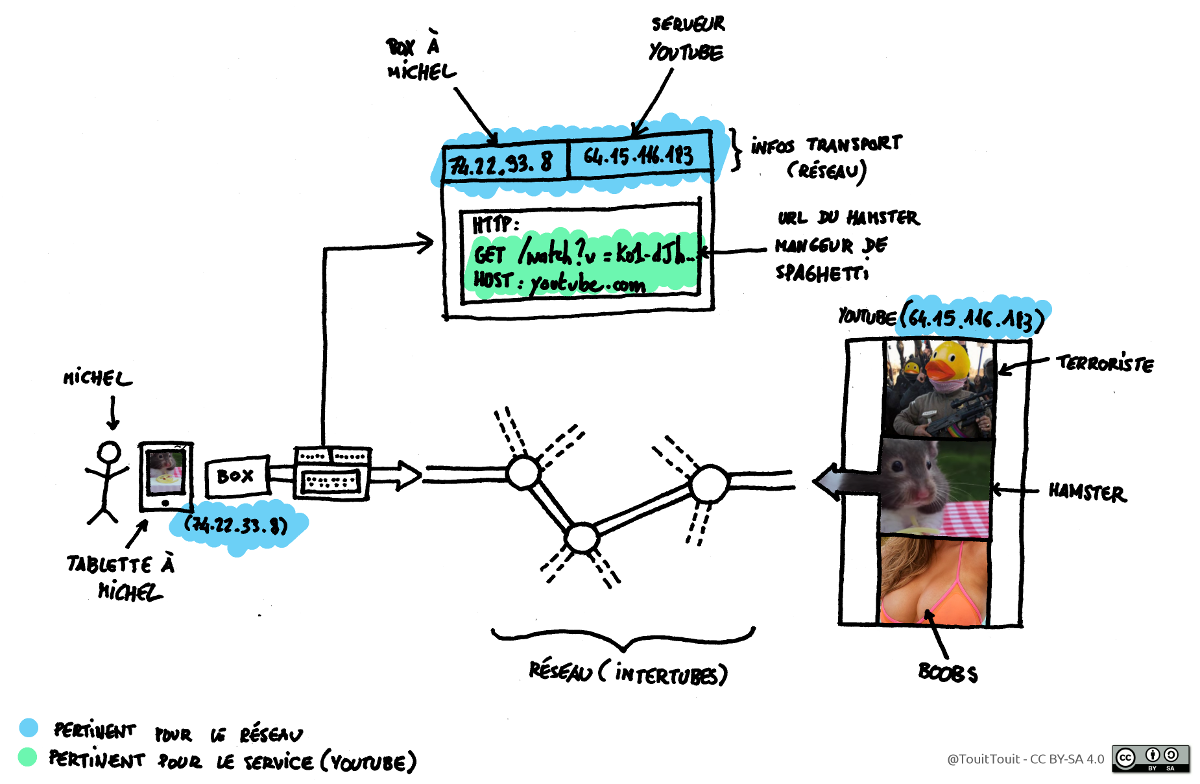 SERVEUR
YOUTUBE
BOX À
MICHEL
74.22.33.8
64.15.116.183
INFOS TRANSPORT
(RÉSEAU)
HTTP:
GET /watch?v=Ko1-dJh...
HOST: youtube.com
URL DU HAMSTER
MANGEUR DE
SPAGHETTI
YOUTUBE (64.15.116.183)
TERRORISTE
MICHEL
BOX
HAMSTER
(74.22.33.8)
TABLETTE À
MICHEL
RÉSEAU (INTERTUBES)
BOOBS
PERTINENT POUR LE RÉSEAU
PERTINENT POUR LE SERVICE (YOUTUBE)
@TouitTouit - CC BY-SA 4.0
cc
BY SA